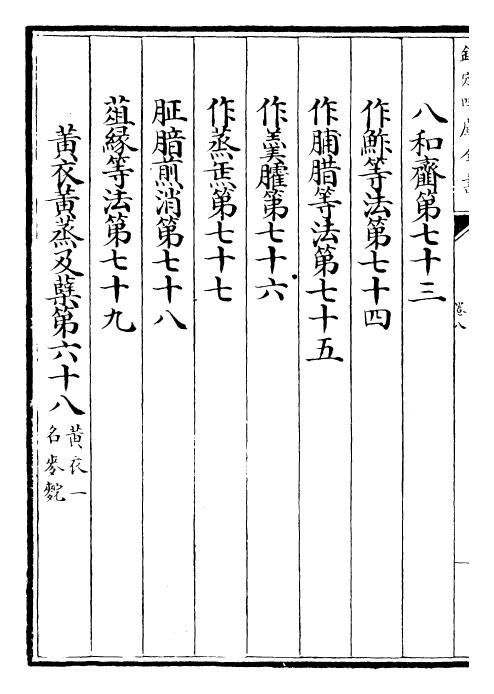 欽定四庫全書
卷八
八和齏第七十三
作鮓等法第七十四
作脯腊等法第七十五
作羮臛第七十六
作蒸缹第七十七
䏑腤煎消第七十八
葅緑等法第七十九
黄衣黄蒸及糵第六十八黄衣一
名麥䴷